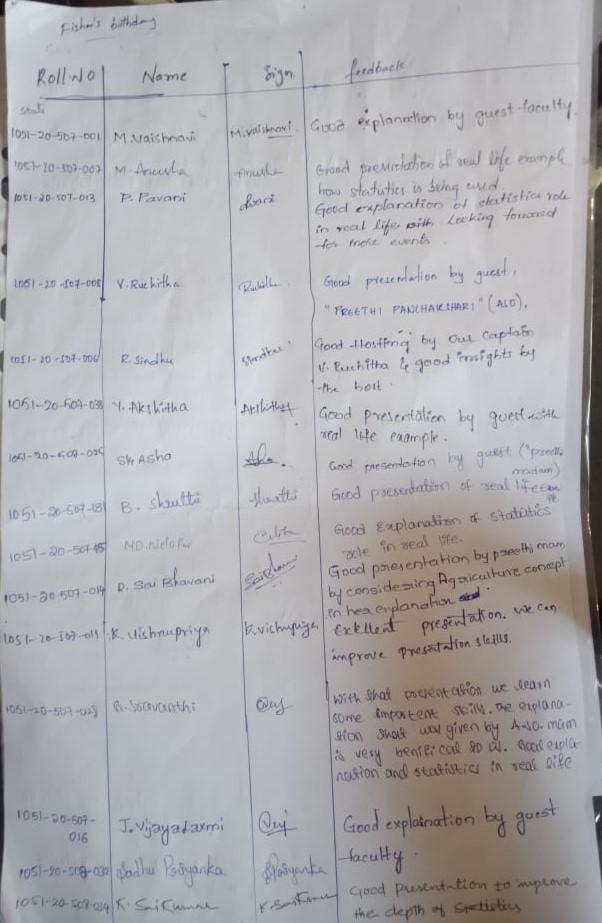 Fisher's birthday
Roll.No Name Sign. feedback
1051-20-507-001 M.Vaishnavi M.Vaishnavi Good explanation by guest faculty.
M. Anusha Anusha Good presentation of real life example
how statistics is being used
1051-20-507-013 P. Pavani Good explanation of statistics role
in real life. with Looking forward
for more events.
1051-20-507-008 V. Ruchitha Good presentation by guest,
"PREETHI PANCHAKSHARI" (ASO).
1051-20-507-006 R. Sindhu Sindhu Good Hosting by our Captain
V. Ruchitha & good insights by
the host.
1051-20-507-038 Y. Akshitha Good presentation by guest with
real life example.
Sk Asha Good presentation by guest ("preethi
madam)
B. Shruthi Shruthi Good presentation of real life
Good Explanation of statistics
role in real life.
1051-20-507-014 D. Sai Bhavani Good presentation by preethi mam
by considering Agriculture concept
in her explanation
1051-20-507-011 K. Vishnupriya Excellent presentation. we can
improve presentation skills.
1051-20-507-029 G. Sravanthi with that presentation we learn
some important skills. The explana-
tion that was given by A.S.O. mam
is very benifical to us. Good expla-
nation and statistics in real life
1051-20-507-
016 J. Vijayalaxmi Good explaination by guest
faculty.
Sadhu Priyanka
K. SaiKumar K. SaiKumar Good presentation to improve
the depth of Statistics